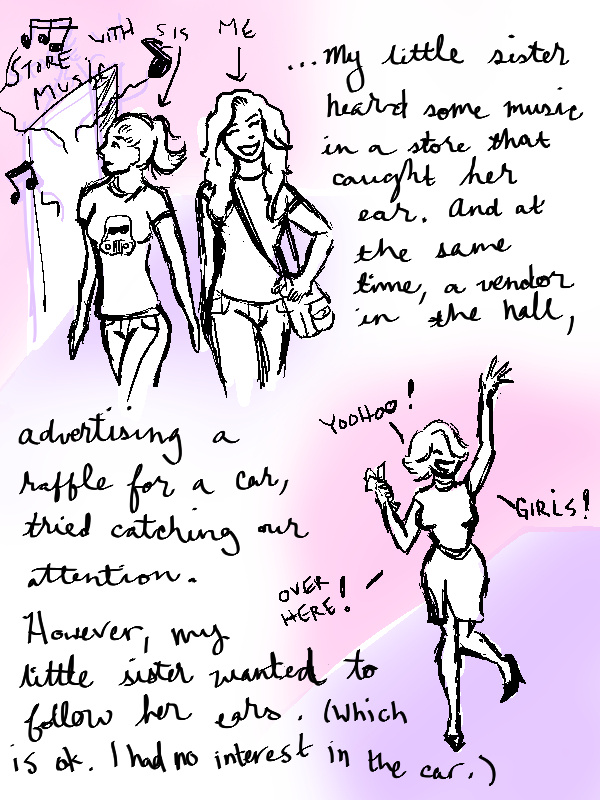 STORE WITH
MUSIC
SIS
ME
...my little sister
heard some music
in a store that
caught her
ear. And at
the same
time, a vendor
in the hall,
advertising a
raffle for a car,
tried catching our
attention.
YOOHOO!
GIRLS!
OVER
HERE!
However, my
little sister wanted to
follow her ears. (Which
is ok. I had no interest in the car.)